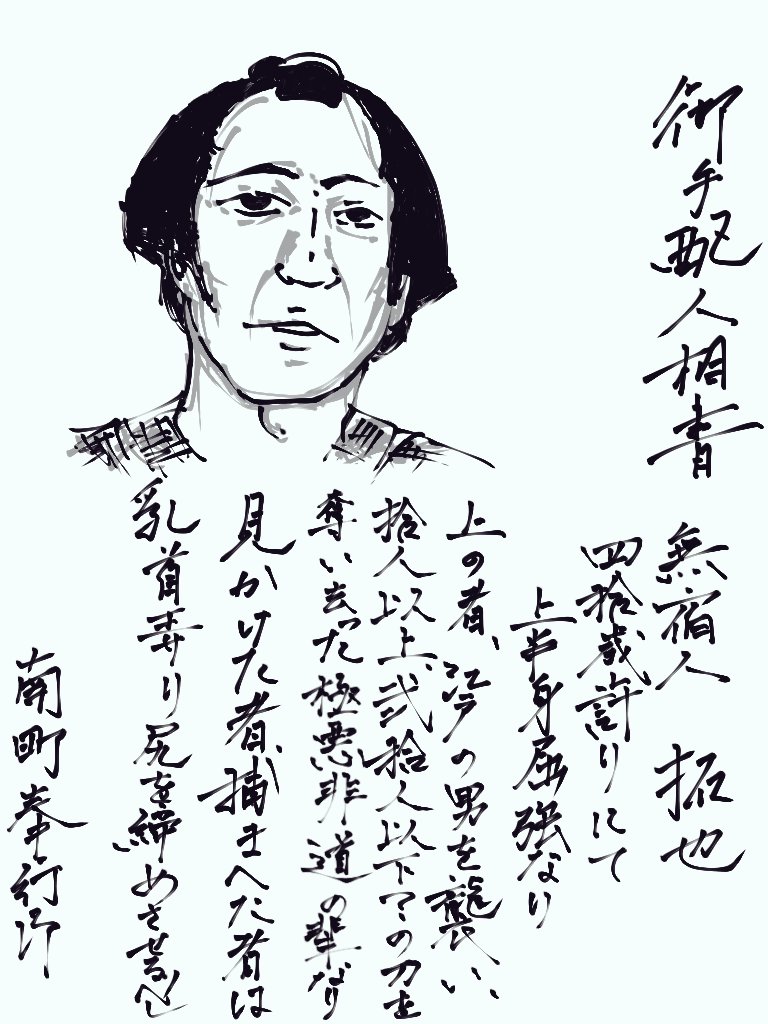 御手配人相書
無宿人 拓也
四拾歳許りにて
上半身屈強なり
上の者、江戸の男を襲い、
拾人以上、弐拾人以下での刀を
奪い去った極悪非道の輩なり
見かけた者、捕まへた者は
乳首毒り尻を締めさせるべし
南町奉行所